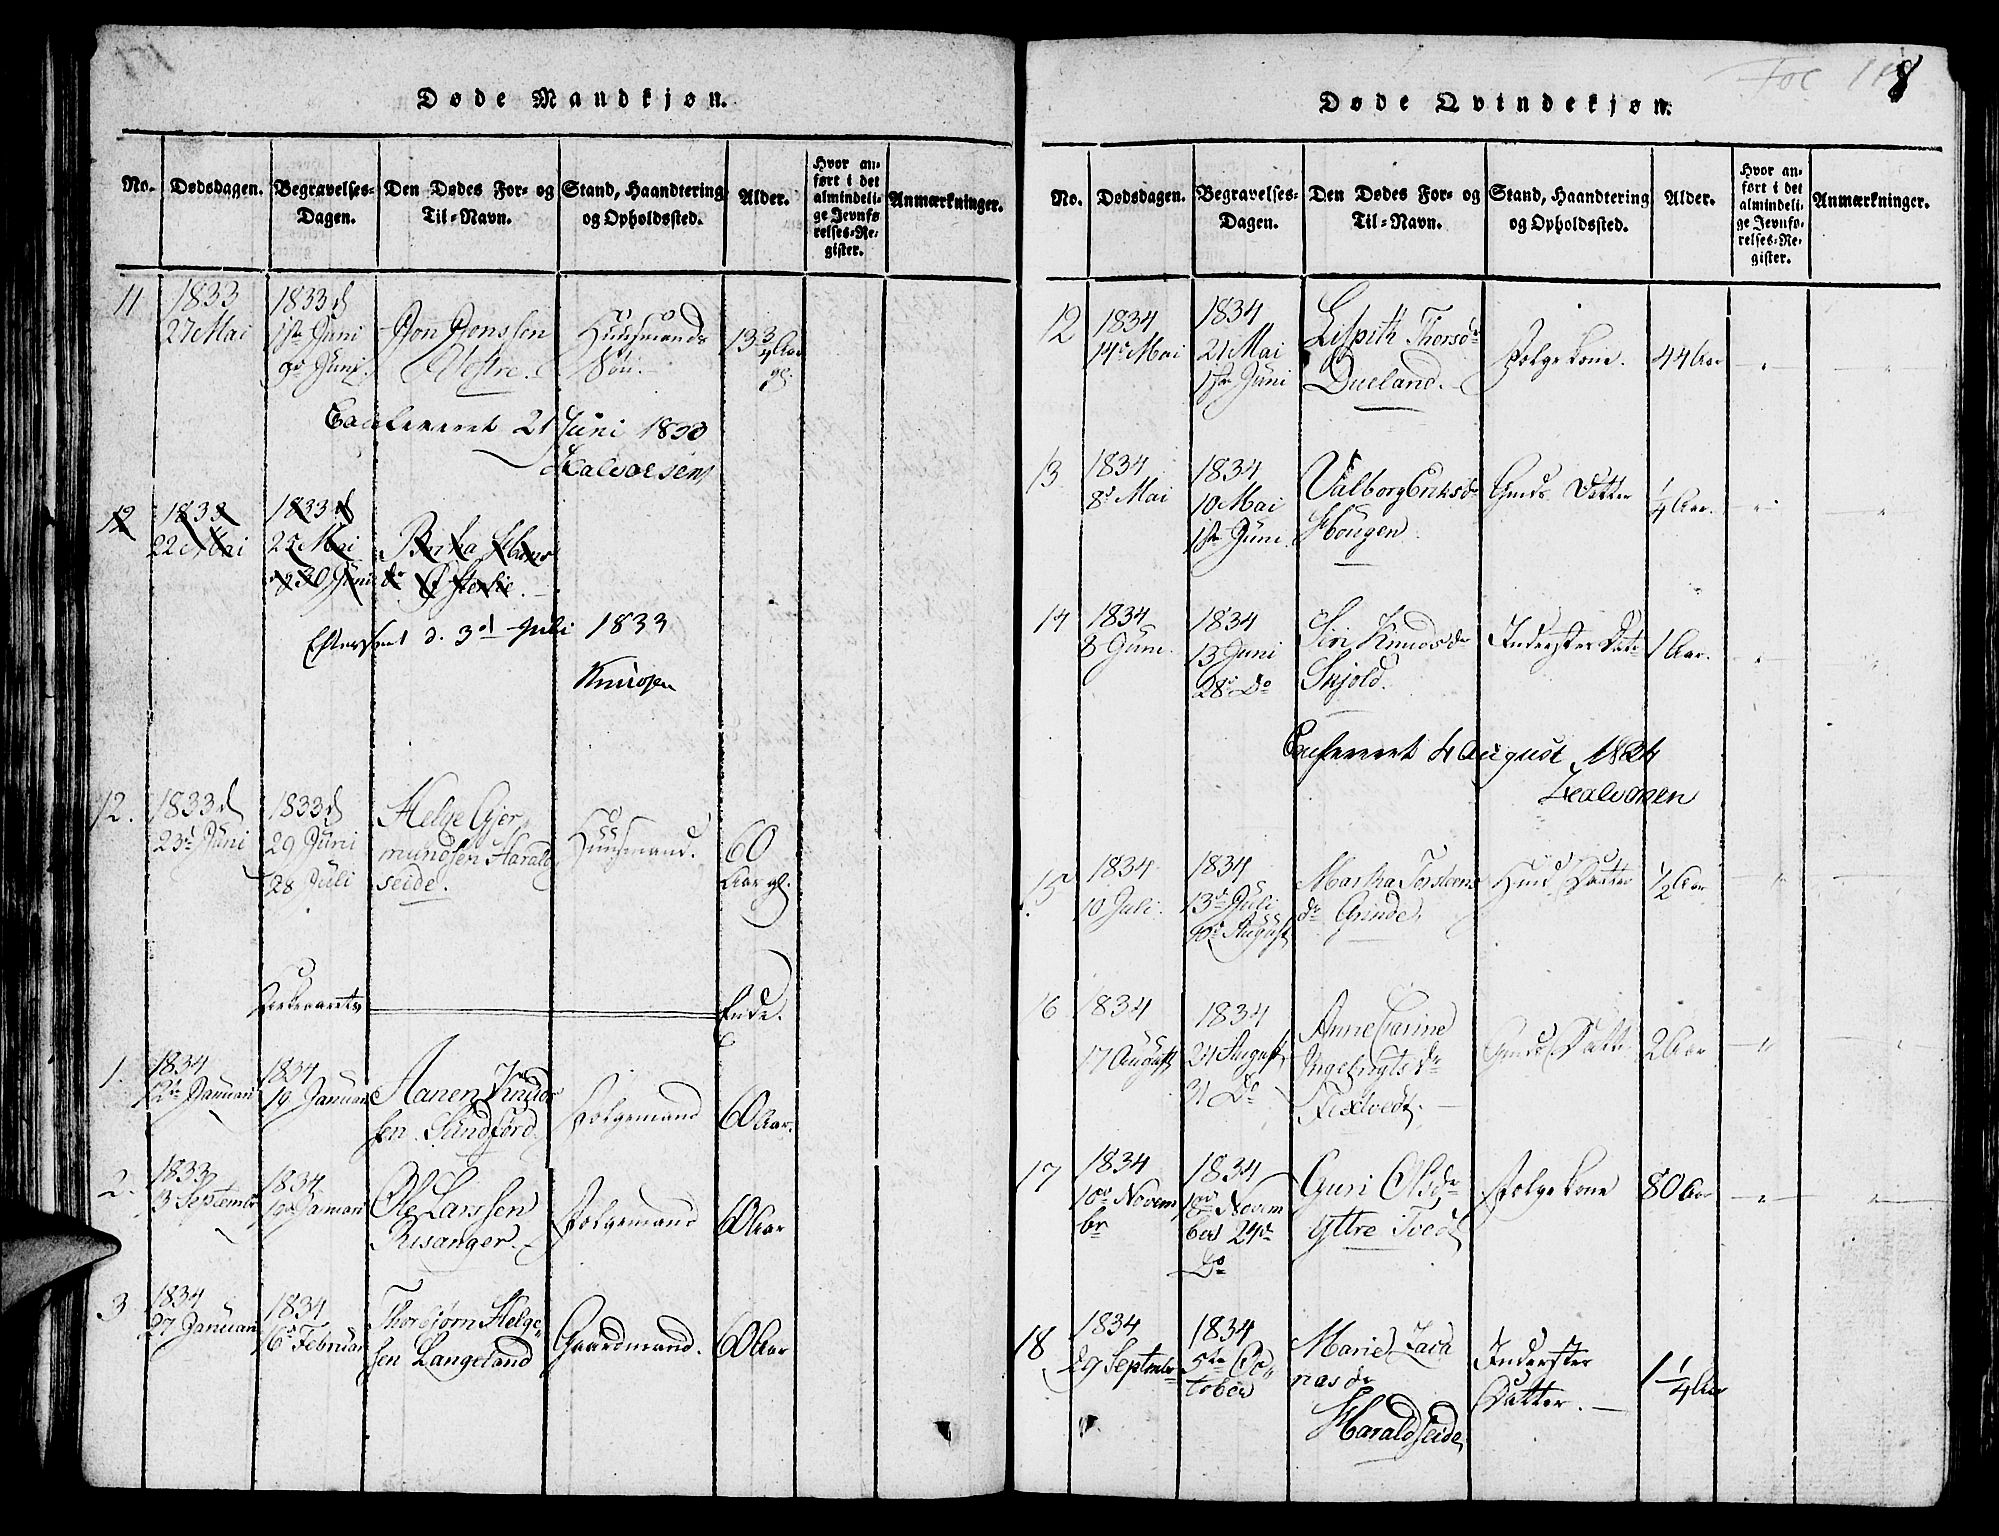 Døde Mandkjøn.
No.
Dødsdagen.
Begravelses-
Dagen.
Den Dødes For- og
Til-Navn.
Stand, Haandtering
og Opholdssted.
Alder.
Hvor an-
ført i det
almindeli-
ge Jevnfø
relses-Re-
gister.
Anmærkninger.
11
1833
27 Mai
1833
Juni
Juni
Jon Jenssen
Huusmands
13 3/4 Aar
gl.
21 Juni 1833
Halvorsen
12
1833
22 Mai
1833
25 Mai
30 Juni
Østerlie.
d. 3d Juli 1833
Knudsen
12.
1833
23 Juni
1833
29 Juni
28 Juli
Helge Gjer
mundsen Harald
seide.
Huusmand.
60
Aar gl.
Kirkeaarets
Ende.
1.
1834
12 Januari
1834
19 Januari
Aanen Knud
sen Sundførd
Følgemand
60 Aar.
2.
1833
3 September
1834
19 Januari
Ole Larssen
Risanger.
Følgemand
60 Aar
3
1834
27 Januari
1834
16 Februar
Thorbjørn Helge
sen Langeland
Gaardmand.
60 Aar
Døde Qvindekjøn.
118
No.
Dødsdagen.
Begravelses-
Dagen.
Den Dødes For- og
Til-Navn.
Stand, Haandtering
og Opholdssted.
Alder.
Hvor an-
ført i det
almindeli-
ge Jevnfø-
relses-Re-
gister.
Anmærkninger.
12
1834
14 Mai
1834
21 Mai
1ste Juni
Lispith Thorsdr
Dueland.
Følgekone.
44 Aar
13
1834
8 Mai
1834
10 Mai
1ste Juni
Valborg Eriksdr
Hougen.
Gmds Datter
1/4 Aar.
14
1834
8 Juni.
1834
13 Juni
28 Do
Siri Knudsdr
Skjold.
Inderster Dat
1 Aar.
4 August 1834
Halvorsen
15
1834
10 Juli.
1834
13 Juli
10 August
Martha Torstens
dr Grinde,
Datter
1/2 Aar
16
1834
17 August
1834
24 August
31 Do
Anne Carine
Ingebrigtsdr
Gmds Datt.
2 Aar
17
1834
10 Novem
br
1834
Novem
ber 24
Do
Guri Olsdr
Yttre Tved
Følgekone
80 Aar
18
1834
29 September
1834
5te Oc
tober
Marie Zaca
riasdr
Haraldseide
Inderster
Datter.
1 1/4 Aar